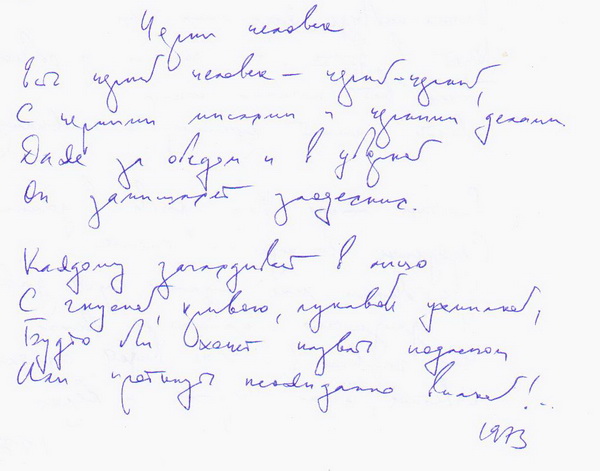 Черный человек
Есть черный человек — черный-черный,
С черными мыслями и черными делами
Даже за обедом и в уборной
Он замышляет злодеяния.
Каждому заглядывает в лицо
С гнусной, кривою, лукавой ухмылкой,
Будто бы хочет назвать подлецом
Или проткнуть неожиданно вилкой!..
1973